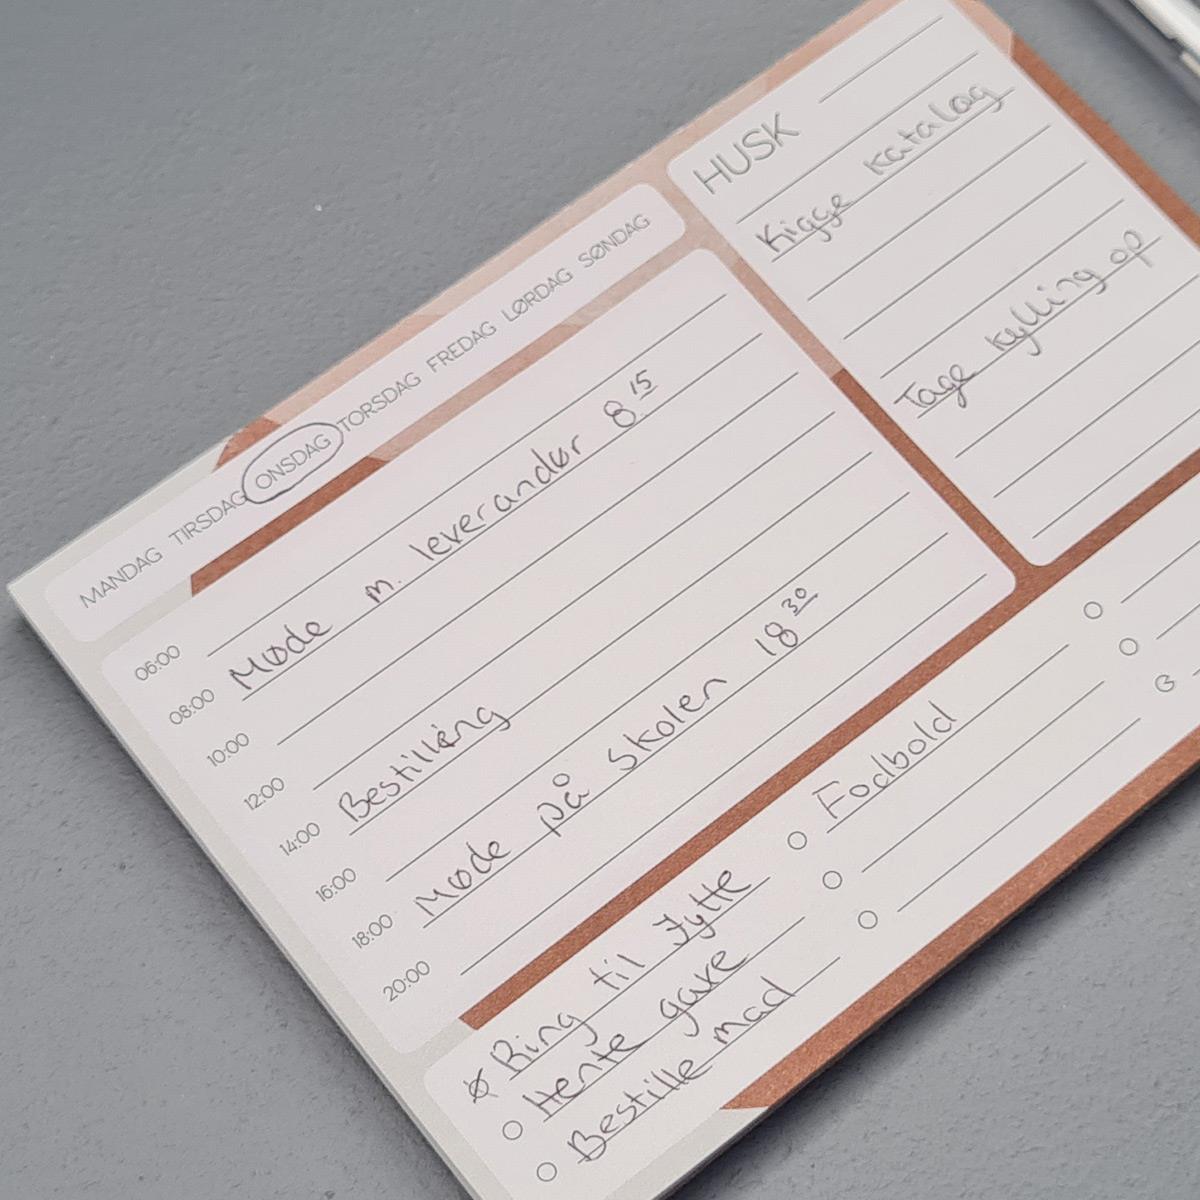 MANDAG TIRSDAG ONSDAG TORSDAG FREDAG LØRDAG SØNDAG
06:00
08:00 Møde m. leverandør 8 15
10:00
12:00
14:00 Bestilling
16:00
18:00 Møde på Skolen 18 30
20:00
HUSK
Kigge katalog
Tage kylling op
Ring til Jytte
Hente gave
Bestille mad
Fodbold